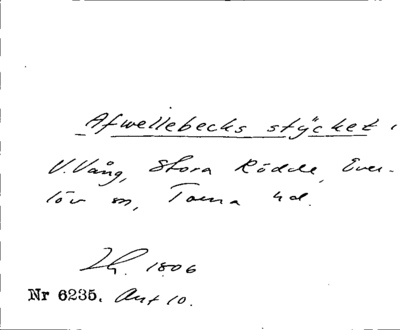 Afwellebecks stÿcket,
V. Vång, Stora Rödde, Ever-
löv sn, Torna hd.
Lh. 1806
Nr 6235. Akt 10.